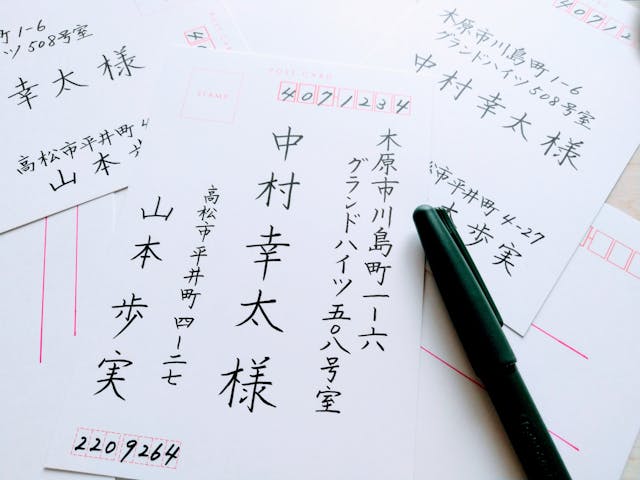 POST CARD
STAMP
4071234
木原市川島町一ー六
グランドハイツ五〇八号室
中村幸太様
高松市平井町四ー二七
山本歩実
2209264
町1-6
ツ508号室
幸太様
高松市平井町4
山本
40712
木原市川島町1-6
グランドハイツ508号室
中村幸太様
市平井町4-27
歩実